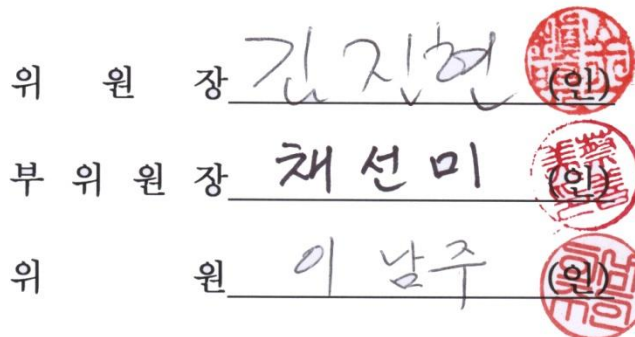 위 원 장 김진현 (인)
부 위 원 장 채선미 (인)
위 원 이남주 (인)